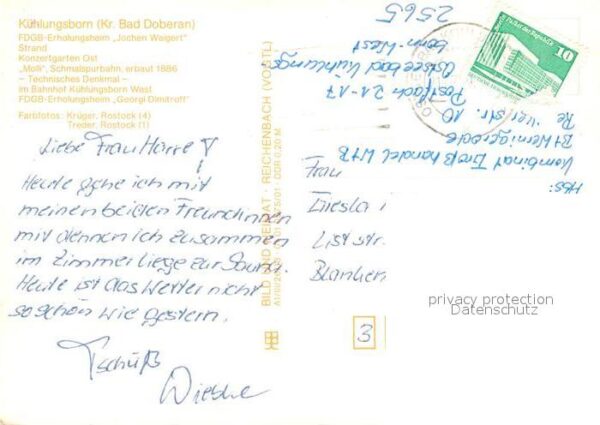 Kühlungsborn (Kr. Bad Doberan)
FDGB-Erholungsheim „Jochen Weigert"
Strand
Konzertgarten Ost
„Molli", Schmalspurbahn, erbaut 1886
– Technisches Denkmal –
im Bahnhof Kühlungsborn West
FDGB-Erholungsheim „Georgi Dimitroff"
Farbfotos: Krüger, Rostock (4)
Treder, Rostock (1)
Liebe Frau Harre!
Heute gehe ich mit
meinen beiden Freundinnen
mit dennen ich zusammen
im Zimmer liege zur Sauna.
Heute ist das Wetter nicht
so schön wie gestern.
Tschüß
Wiebke
BILD UND HEIMAT · REICHENBACH (VOGTL)
DDR 0,20 M
Abs:
Kombinat Großhandel WtB
Wernigerode
10
Postfach 21-17
Ostseebad Kühlungs-
born-West
2565
Palast der Republik
10
Frau
Liststr.
Blanken
3
privacy protection
Datenschutz